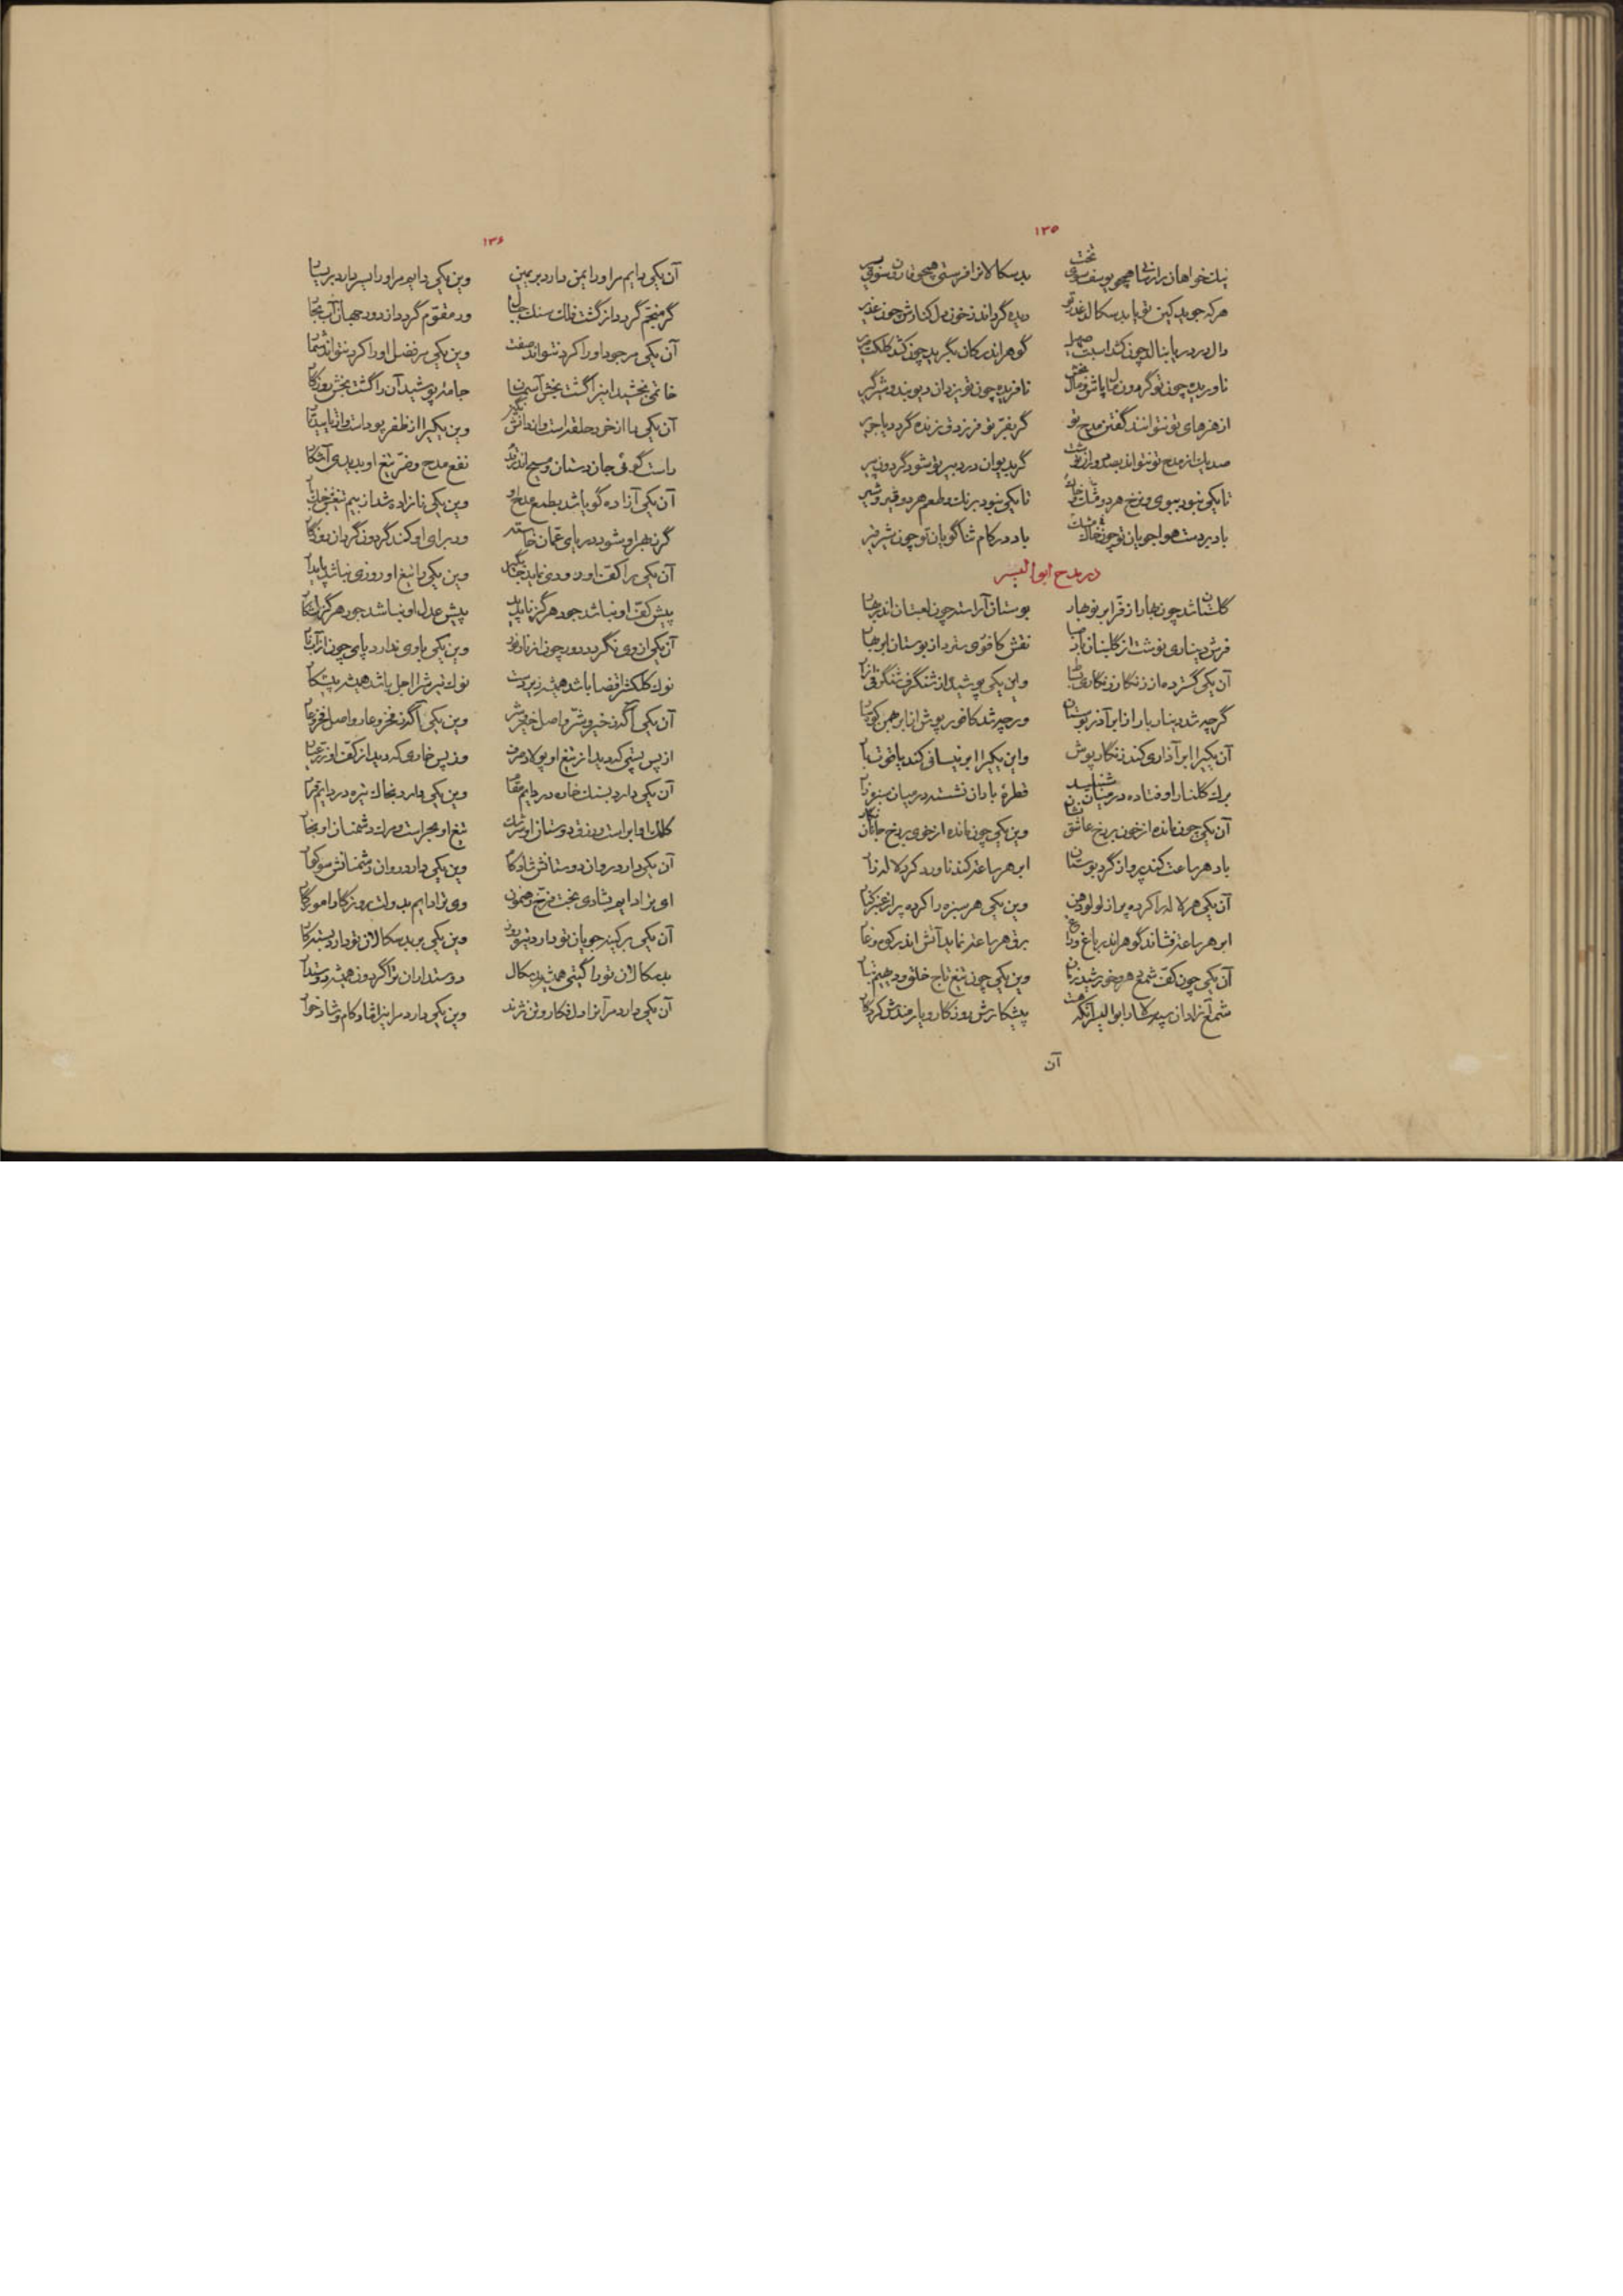 ۱۳۵
نیك خواهان را رسانی همچو یوسف سوی تخت
بدسکالانرا فرستی همچو قارون سوی بیر
هرکه جوید کین تو یا بد سکالد غدر تو
دیده گرداند ز خون دل کنارش چون غدیر
دال در دریا بنالد چون کند اسبت صهیل
گوهر اندر کان بگرید چون کند کلکت صریر
ناوریده چون تو گردون
نافریده چون تو یزدان دیو بند و شیر گیر
از هنرهای تو نتوانند گفتن مدح تو
گر بفرّ تو فرزدق زنده گردد یا جریر
صد یك از مدح تو نتواند
گر بدیوان در دبیر تو شود گردون پیر
تا یکی نبود ببوی و نرخ هر دو مشك و خاك
تا یکی نبود برنك و طعم هر دو قیر و شیر
باد بر دست هواجویان تو چون مشك خاك
باد در کام ثناگویان تو چون شیر قیر
در مدح ابوالیسر
گلستان شد چون بهار از فرّ ابر نوبهار
بوستان آراسته چون لعبتان اندر بهار
فرش دیناری نوشت از گلبنان باد صبا
نقش کافوری سترد از بوستان ابر بهار
آن یکی گسترده از زنگار زنگاری بساط
واین یکی پوشیده از شنگرف شنگرفی ازار
گرچه شد دینار بار از ابر آذر بوستان
ورچه شد کافور پوش از ابر بهمن کوهسار
آن یکیرا ابر آذاری کند زنگار پوش
واین یکیرا ابر نیسانی کند یاقوت بار
برك گلنار اوفتاده در میان شنبلید
قطرهٔ باران نشسته در میان سبزه زار
آن یکی چون مانده از خون بر رخ عاشق نشان
وین یکی چون مانده از خوی بر رخ جانان نگار
باد هر ساعت کند پرواز گرد بوستان
ابر هر ساعت کند ناورد گرد لاله زار
آن یکی هر لاله را کرده پر از لولو دهن
وین یکی هر سبزه را کرده پر از عنبر کنار
ابر هر ساعت فشاند گوهر اندر باغ و راغ
برق هر ساعت نماید آتش اندر کوه و غار
آن یکی چون کف شمع هر خورشید زمان
وین یکی چون تیغ تاج خلق و دیهیم تبار
شمع آزادان سپهسالار ابوالیسر آنکه هست
پیشکارش روزگار و یارمندش کردگار
آن
۱۳۶
آن یکی دایم مر او را یمن دارد بر یمین
وین یکی دایم مر او را یسر دارد بر یسار
گر منجّم گردد از گشت فلك سنك جبال
ور مقوّم گردد از دور جهان آب بحار
آن یکی مر جود او را کرد نتواند صفت
وین یکی مر فضل او را کرد نتواند شمار
خاتمی بخشید اینرا گشت بخش آسمان
جامهٔ پوشید آن را گشت بخش روزگار
آن یکی را از خرد حلقه است و از دانش نگین
وین یکیرا از ظفر پود است و از تایید تار
راست گوئی جان دستان و مسیح اندرند
نفع مدح و ضرّ تیغ او بدیدی آشکار
آن یکی آزاده گویا شد بطمع مدح او
وین یکی نازاده شد از بیم تیغش خاکسار
گر نه بهر او شود دریای عمّان خاسته
ور برای او کند گردون گردان روزگار
آن یکی را کفّ او روزی نماید
وین یکی را تیغ او روزی نباشد پایدار
پیش کفّ او نباشد جود هرگز ناپدید
پیش عدل او نباشد جور هرگز آشکار
آن یکی از وی نگردد دور چون از نار نور
وین یکی با وی ندارد پای چون از آب نار
نوك کلکش را قضا باشد همیشه زیردست
نوك تیرش را اجل باشد همیشه پیشکار
آن یکی آگنده خیر و شرّ و اصل خیر و شر
وین یکی آگنده فخر و عار و اصل فخر و عار
از پس پشتی که دید از تیغ او پولاد مرك
وز پس خاری که دید از کفّ او زرّ عیار
آن یکی دارد بسنك خاره در دایم مقام
وین یکی دارد بخاك تیره در دایم قرار
کلك او ابر است و رزق دوستان او سرشك
تیغ او بحر است و مرك دشمنان او بخار
آن یکی دارد روان دوستانش شادکام
وین یکی دارد روان دشمنانش سوکوار
ای ترا دایم بشادی بخت فرّخ رهنمون
وی ترا دایم بدولت روزگار آموزگار
آن یکی بر کینه جویان تو دارد تیره روز
وین یکی بر بدسکالان تو دارد بسته کار
بدسکالان تو را گیتی همیشه بدسکال
دوستداران ترا گردون همیشه دوستدار
آن یکی دارد مر آنرا دل فکار و تن نژند
وین یکی دارد مر اینرا شادکام و شادخوار